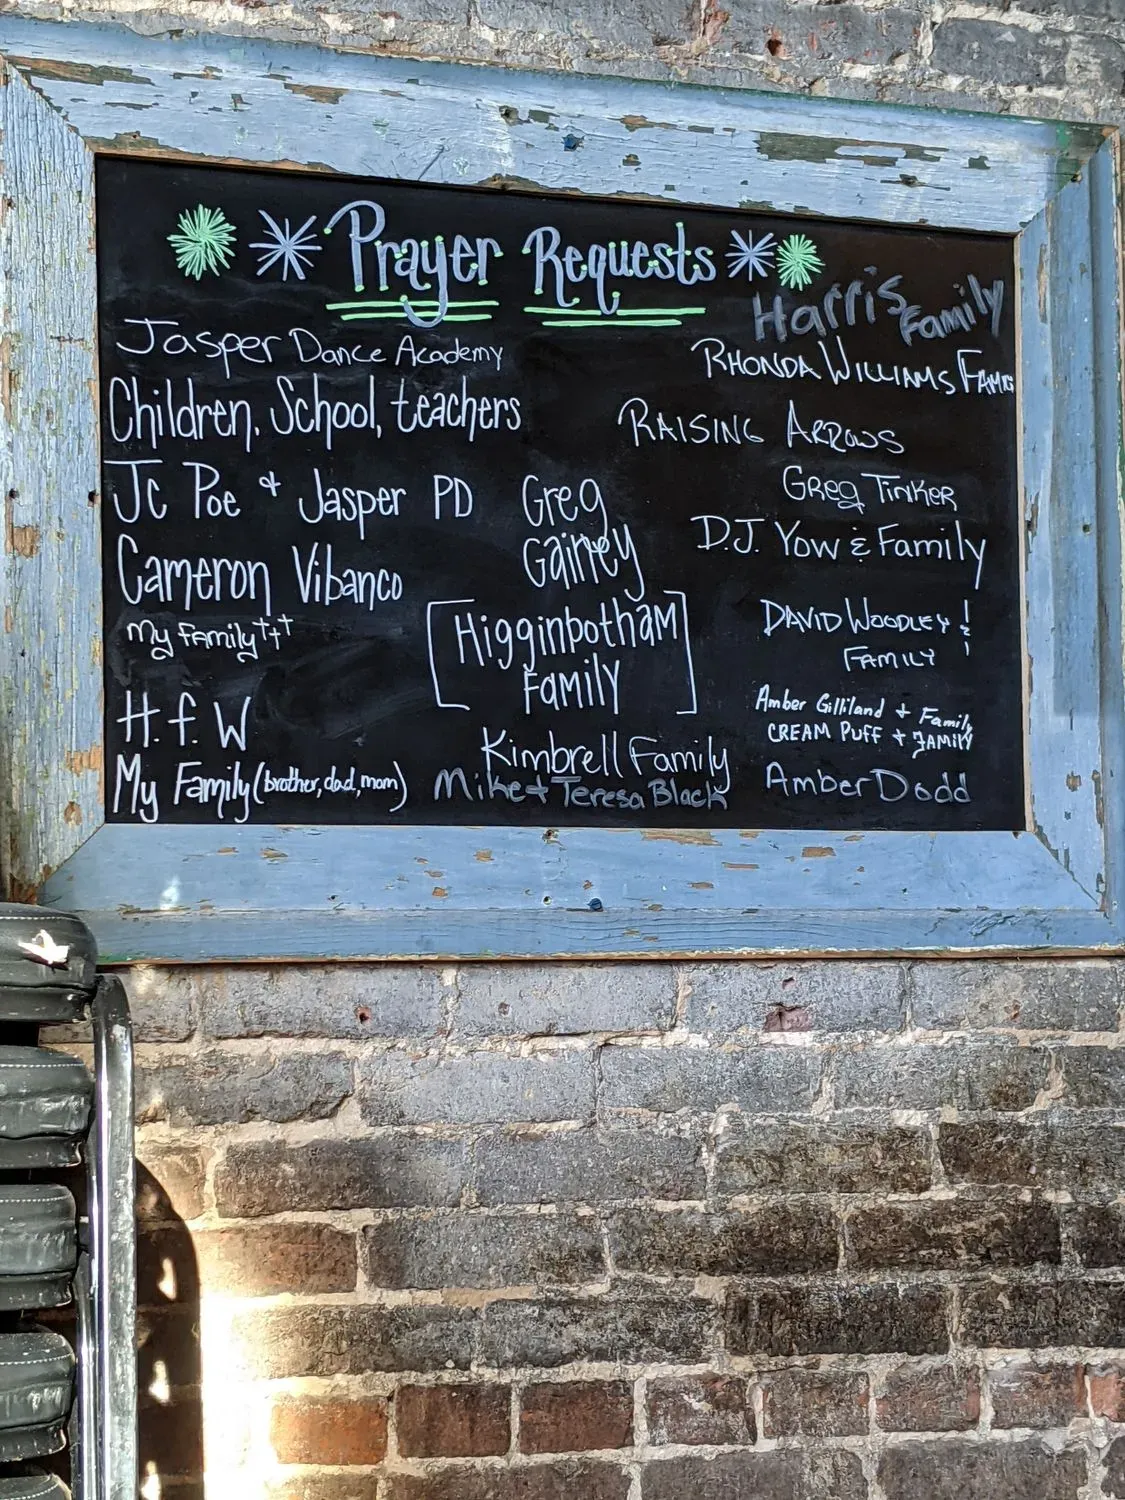 Prayer Requests
Harris Family
Jasper Dance Academy
Children, School, teachers
Jc Poe & Jasper PD
Cameron Vibanco
My family
H. f. W
My Family (brother, dad, mom)
Greg
Gainey
[Higginbotham
Family]
Kimbrell Family
Mike + Teresa Black
RHONDA WILLIAMS FAMILY
RAISING ARROWS
GREG TINKER
D.J. YOW & Family
DAVID WOODLEY &
FAMILY
Amber Gilliland + Family
CREAM PUFF + FAMILY
Amber Dodd